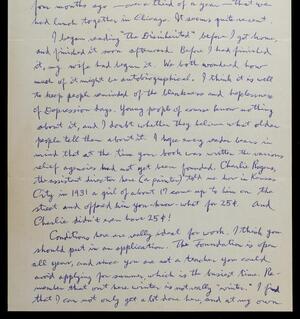 four months ago — over a third of a year — that we
had lunch together in Chicago. It seems quite recent.
I began reading "The Disinherited" before I got home,
and finished it soon afterward. Before I had finished
it, my wife had begun it. We both wondered how
much of it might be autobiographical. I think it is well
to keep people reminded of the bleakness and hopelessness
of Depression days. Young people of course know nothing
about it, and I doubt whether they believe what older
people tell them about it. I hope every reader bears in
mind that at the time your book was written the various
relief agencies had not yet been founded. Charlie Rogers,
the assistant director here (a painter) told me how in Kansas
City in 1931 a girl of about 17 came up to him on the
street and offered him you-know-what for 25¢. And
Charlie didn't even have 25¢!
Conditions here are really ideal for work. I think you
should put in an application. The Foundation is open
all year, and since you are not a teacher you could
avoid applying for summer, which is the busiest time. Re-
member that out here winter is not really "winter." I find
that I can not only get a lot done here, and at my own